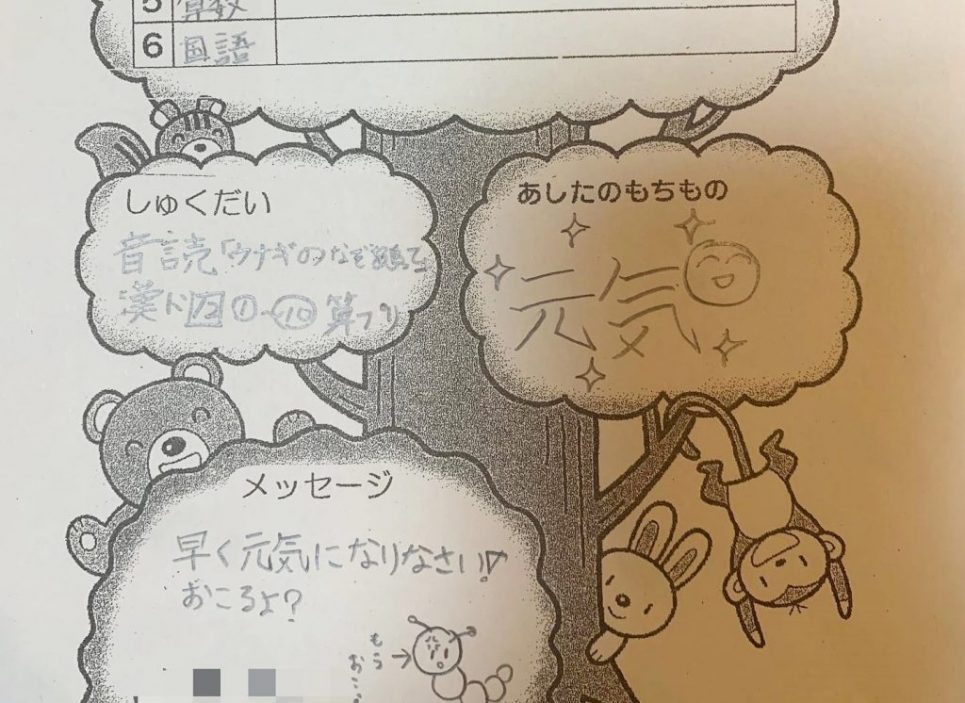 5 算数
6 国語
しゅくだい
音読「ウナギのなぞ
漢ド12①〜⑩ 算プリ
あしたのもちもの
元気
メッセージ
早く元気になりなさい!
おこるよ?
もう
おこ